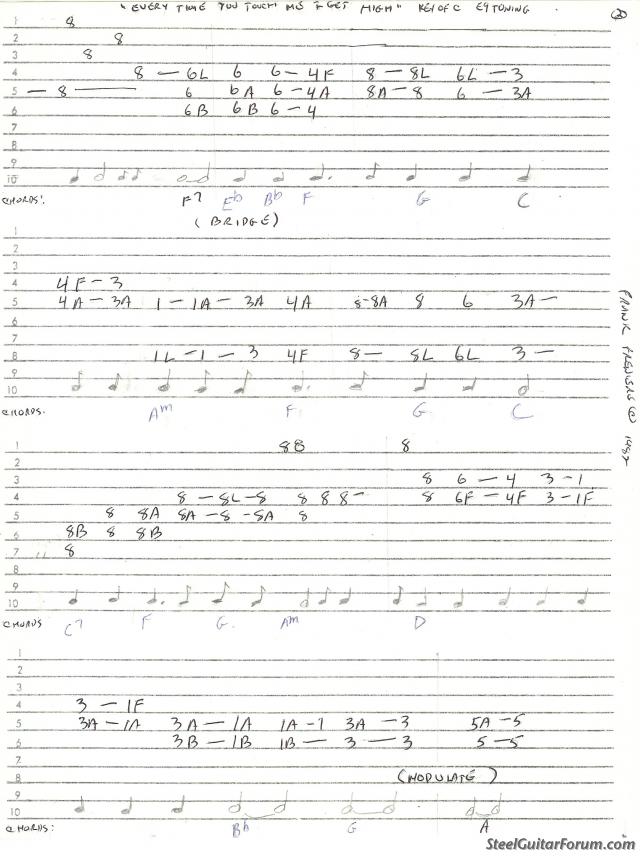 "EVERY TIME YOU TOUCH ME I GET HIGH" KEY OF C E9 TUNING
②
1 8
2 8
3 8
4 8 — 6L 6 6 — 4F 8 — 8L 6L — 3
5 — 8 — 6 6A 6 — 4A 8A — 8 6 — 3A
6 6B 6B 6 — 4
7
8
9
10
CHORDS: F7 Eb Bb F G C
(BRIDGE)
1
2
3
4 4F — 3
5 4A — 3A 1 — 1A — 3A 4A 8-8A 8 6 3A —
6
7
8 1L — 1 — 3 4F 8 — 8L 6L 3 —
9
10
CHORDS. Am F G C
1 8B 8
2
3 8 6 — 4 3 — 1
4 8 — 8L — 8 8 8 8 — 8 6F — 4F 3 — 1F
5 8 8A 8A — 8 — 8A 8
6 8B 8 8B
7 8
8
9
10
CHORDS C7 F G. Am D
1
2
3
4 3 — 1F
5 3A — 1A 3A — 1A 1A — 1 3A — 3 5A — 5
6 3B — 1B 1B — 3 — 3 5 — 5
7
8 (MODULATE)
9
10
CHORDS: Bb G A
FRANK 1982
SteelGuitarForum.com